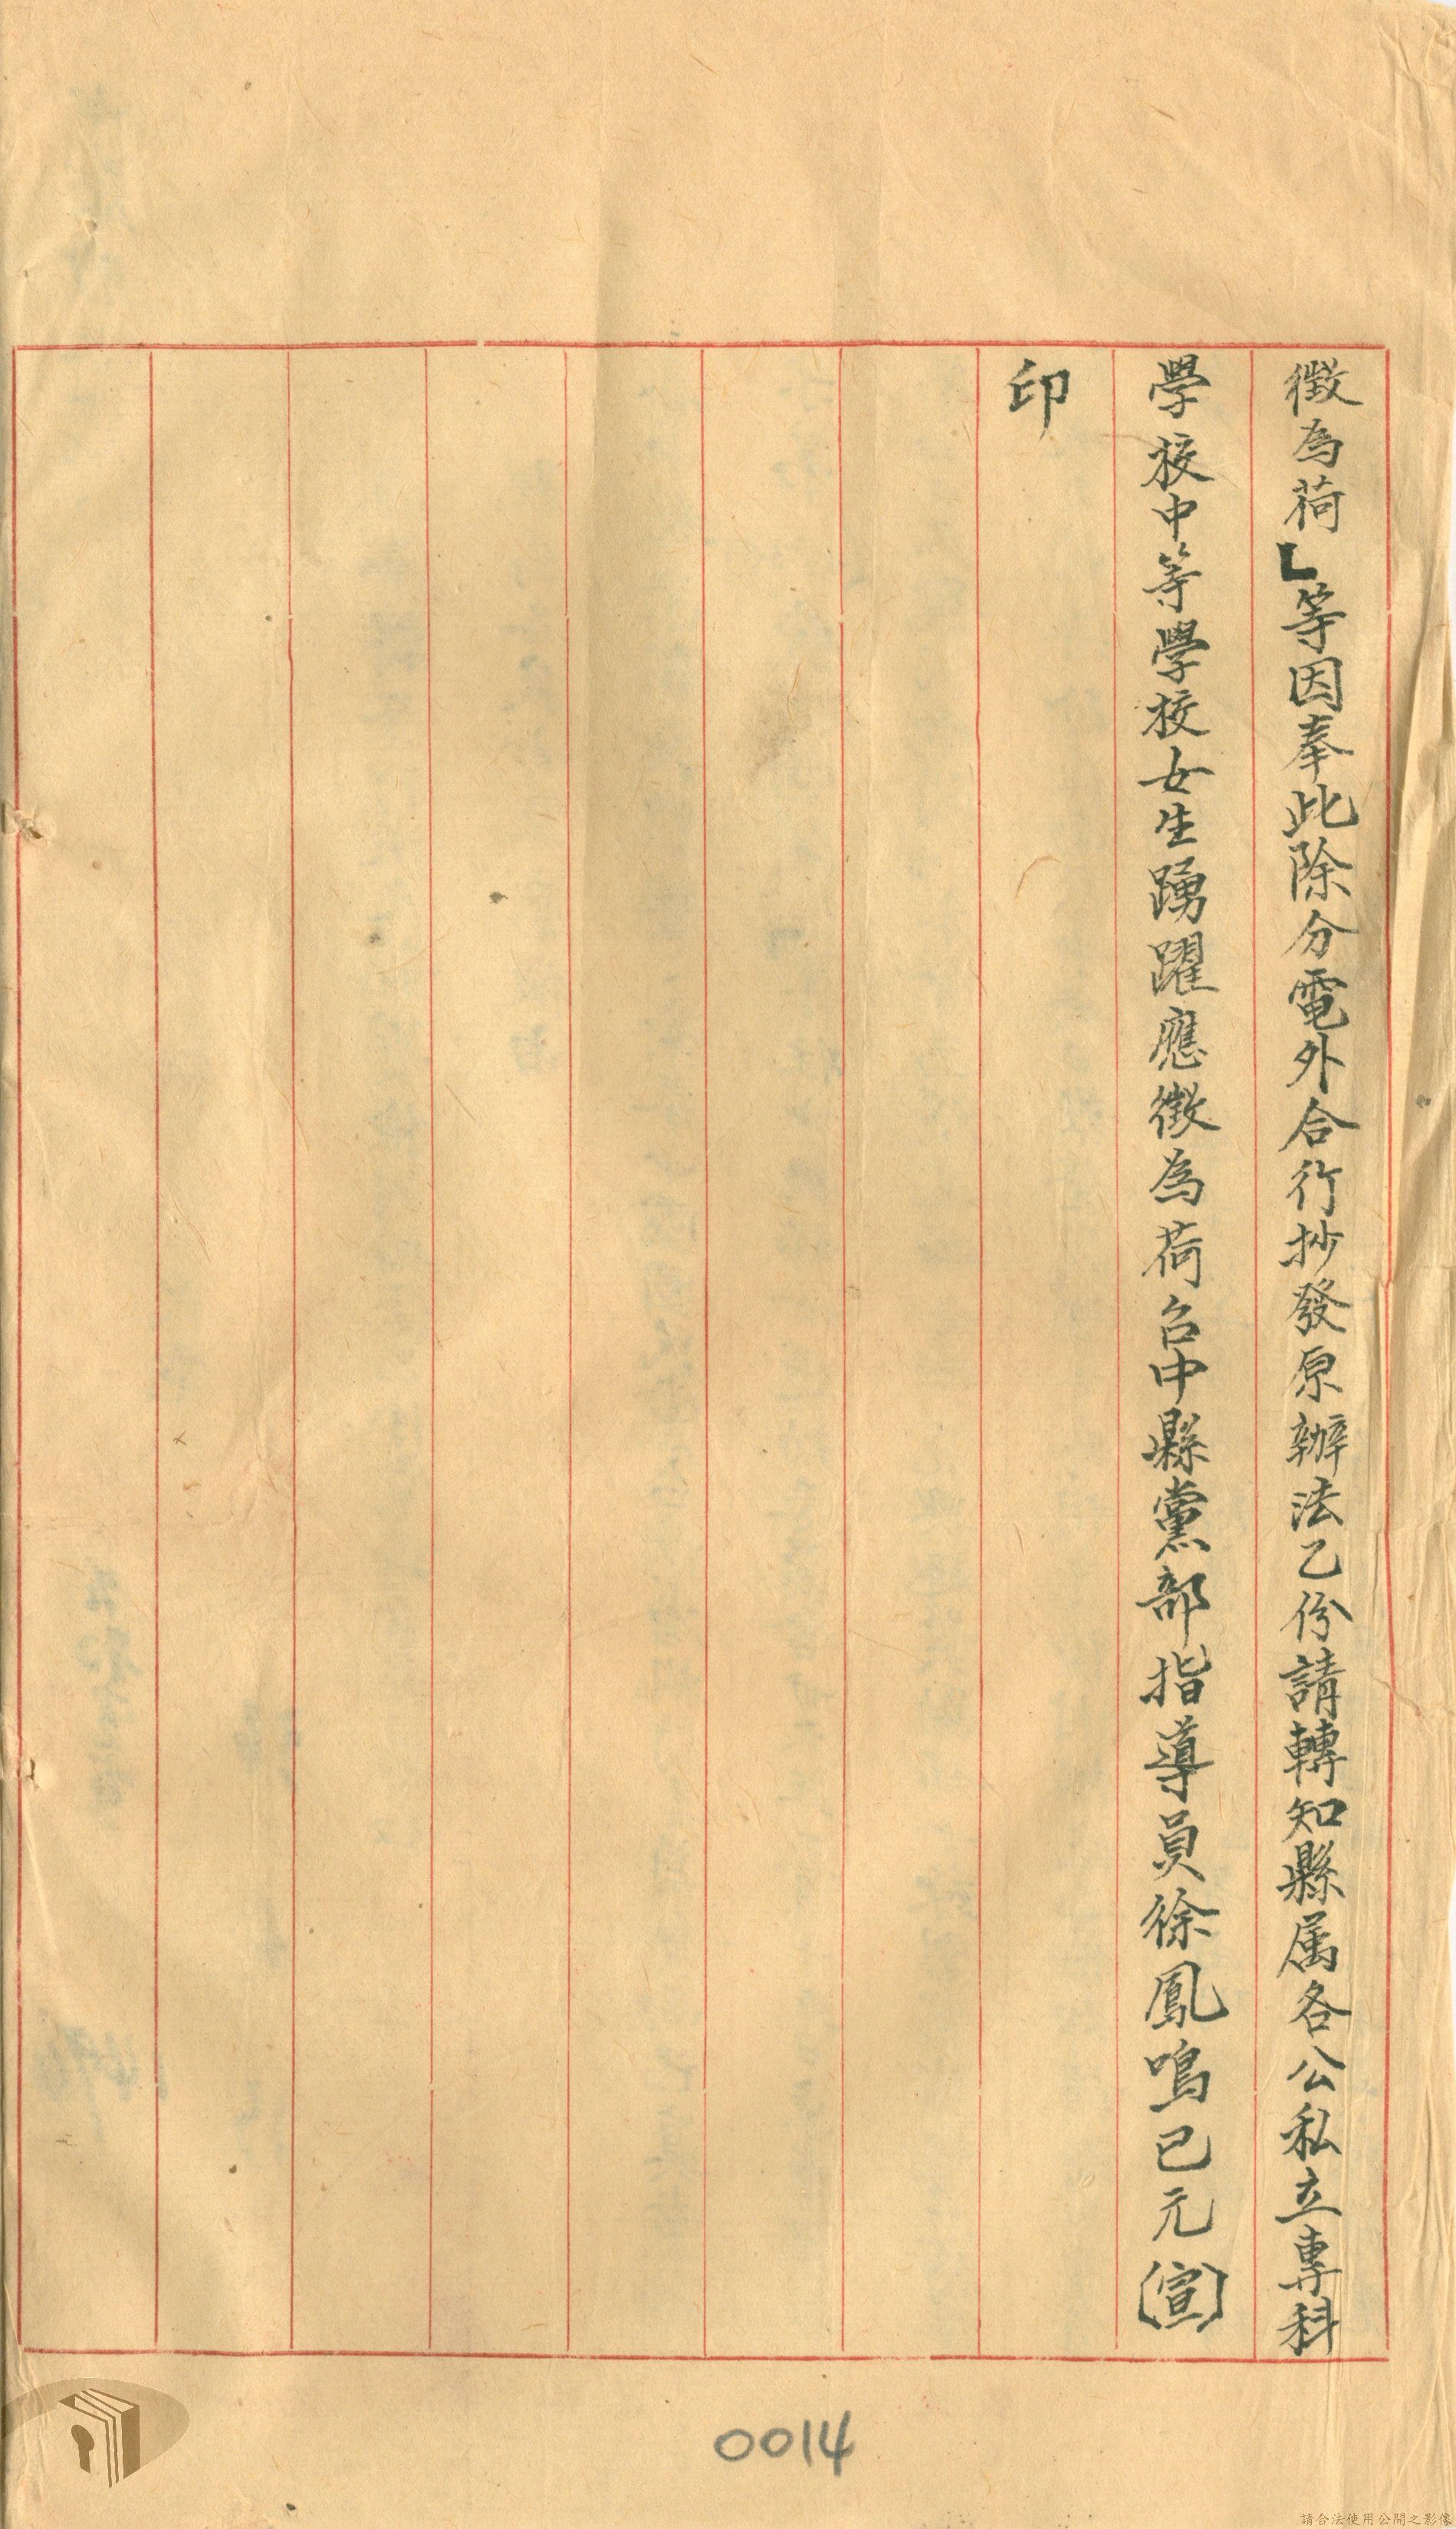 徵為荷」等因奉此除分電外合行抄發原辦法乙份請轉知縣属各公私立專科
學校中等學校女生踴躍應徵為荷台中縣黨部指導員徐鳳鳴已元(宣)
印
0014
請合法使用公開之影像